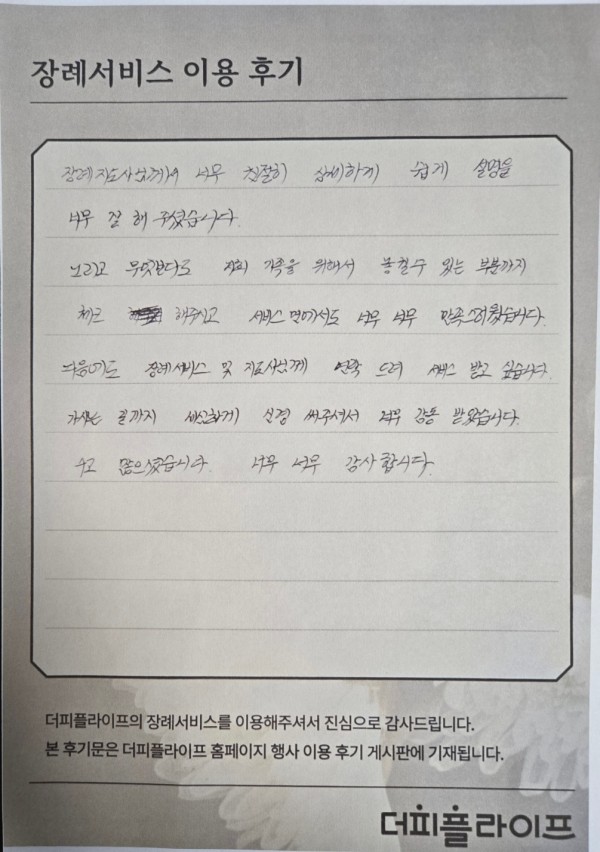 장례서비스 이용 후기
장례지도사님께서 너무 친절히 상세하게 쉽게 설명을
너무 잘 해 주셨습니다.
그리고 무엇보다도 저희 가족을 위해서 놓칠수 있는 부분까지
체크 해주시고 서비스 면에서도 너무 너무 만족스러웠습니다.
다음에도 장례서비스 및 지도사님께 연락 드려 서비스 받고 싶습니다.
가시는 끝까지 세심하게 신경 써주셔서 너무 감동 받았습니다.
수고 많으셨습니다. 너무 너무 감사합니다.
더피플라이프의 장례서비스를 이용해주셔서 진심으로 감사드립니다.
본 후기문은 더피플라이프 홈페이지 행사 이용 후기 게시판에 기재됩니다.
더피플라이프